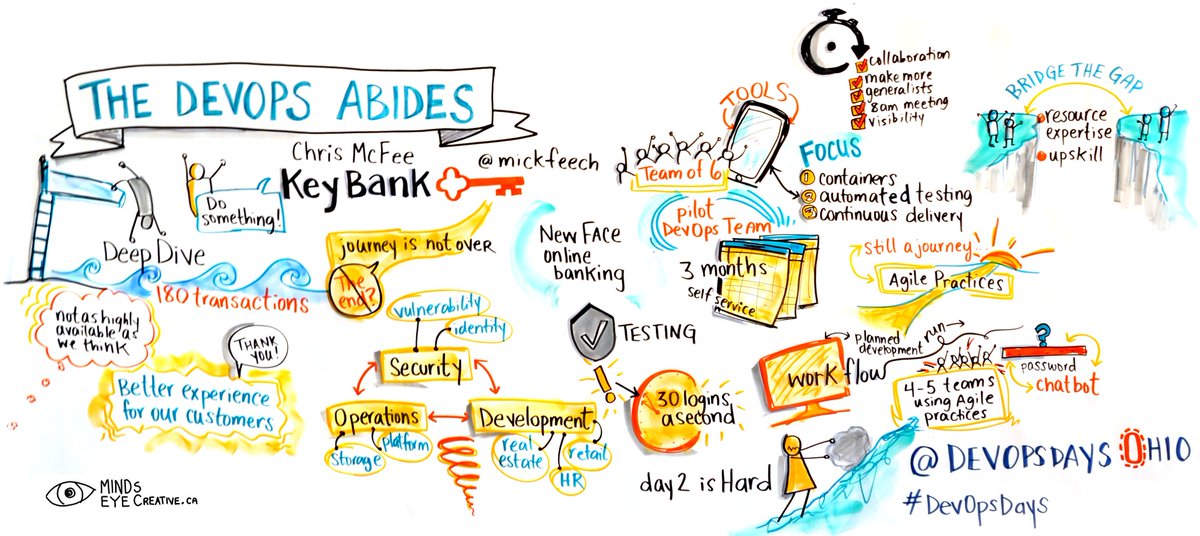 THE DEVOPS ABIDES
Chris McFee
@mickfeech
KeyBank
Do
something!
Deep Dive
180 transactions
not as highly
available as
we think
THANK
YOU!
Better experience
for our customers
journey is not over
The
end?
vulnerability
identity
Security
Operations
Development
storage
platform
real
estate
HR
retail
New Face
online
banking
TESTING
!
30 logins
a second
TOOLS
Team of 6
pilot
DevOps Team
3 months
self service
collaboration
make more
generalists
8am meeting
visibility
FOCUS
1 containers
2 automated testing
3 continuous delivery
BRIDGE THE GAP
resource
expertise
upskill
still a journey
Agile Practices
planned
development
run
work flow
4-5 teams
using Agile
practices
?
password
chatbot
day 2 is Hard
@DEVOPSDAYS OHIO
#DevOpsDays
MINDS
EYE CREATIVE.CA